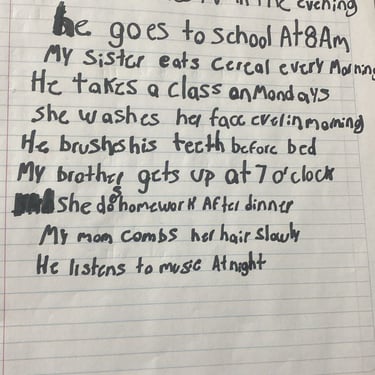 in the evening
he goes to school At 8 Am
My sister eats cereal every Morning
He takes a class on Mondays
she washes her face in morning
He brushes his teeth before bed
My brother gets up at 7 o'clock
she does homework After dinner
My mom combs her hair slowly
He listens to music At night